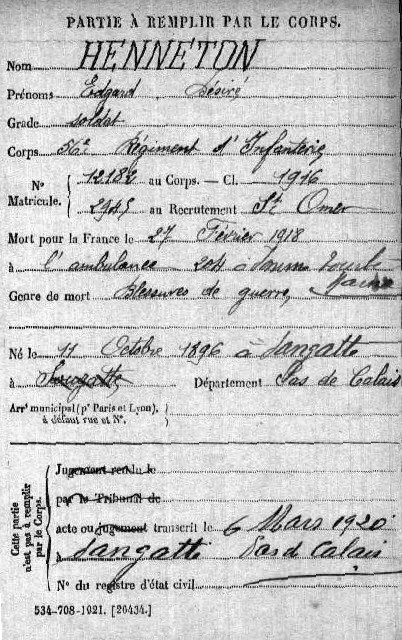 PARTIE À REMPLIR PAR LE CORPS.
Nom HENNETON
Prénoms Edgard Désiré
Grade soldat
Corps 56e Régiment d'Infanterie
N° Matricule. 12182 au Corps. — Cl. 1916
2945 au Recrutement St Omer
Mort pour la France le 27 Février 1918
à l'ambulance 204 à Somme Tourbe Marne
Genre de mort Blessures de guerre,
Né le 11 Octobre 1896 à Sangatte
à Département Pas de Calais
Arrt municipal (pr Paris et Lyon),
à défaut rue et N°.
Cette partie n'est pas à remplir par le Corps.
Jugement rendu le
par le Tribunal de
acte ou jugement transcrit le 6 Mars 1920
à Sangatte Pas de Calais
N° du registre d'état civil
534-708-1921. [26434.]